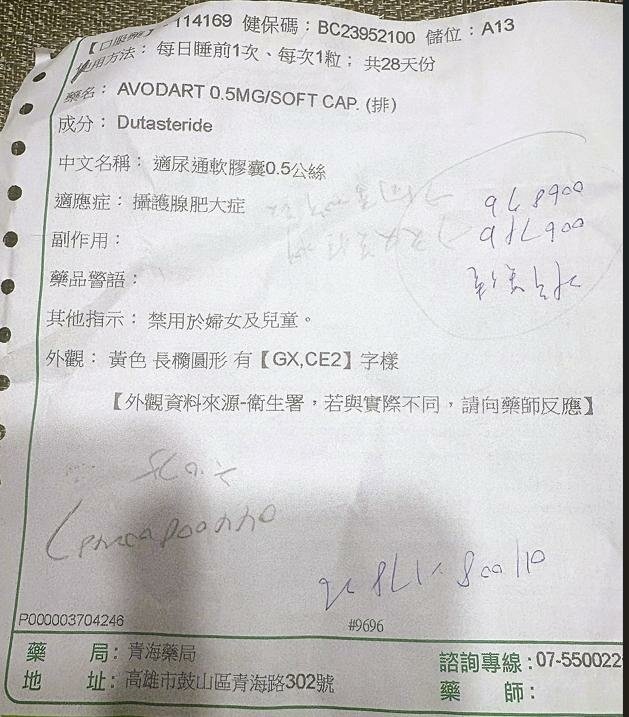 【口服藥】 114169 健保碼：BC23952100 儲位：A13
使用方法： 每日睡前1次、每次1粒； 共28天份
藥名： AVODART 0.5MG/SOFT CAP. (排)
成分： Dutasteride
中文名稱： 適尿通軟膠囊0.5公絲
適應症： 攝護腺肥大症
副作用：
藥品警語：
其他指示： 禁用於婦女及兒童。
外觀： 黃色 長橢圓形 有【GX,CE2】字樣
【外觀資料來源-衛生署，若與實際不同，請向藥師反應】
P000003704246
#9696
藥 局：青海藥局
諮詢專線：07-550022
地 址：高雄市鼓山區青海路302號
藥 師：